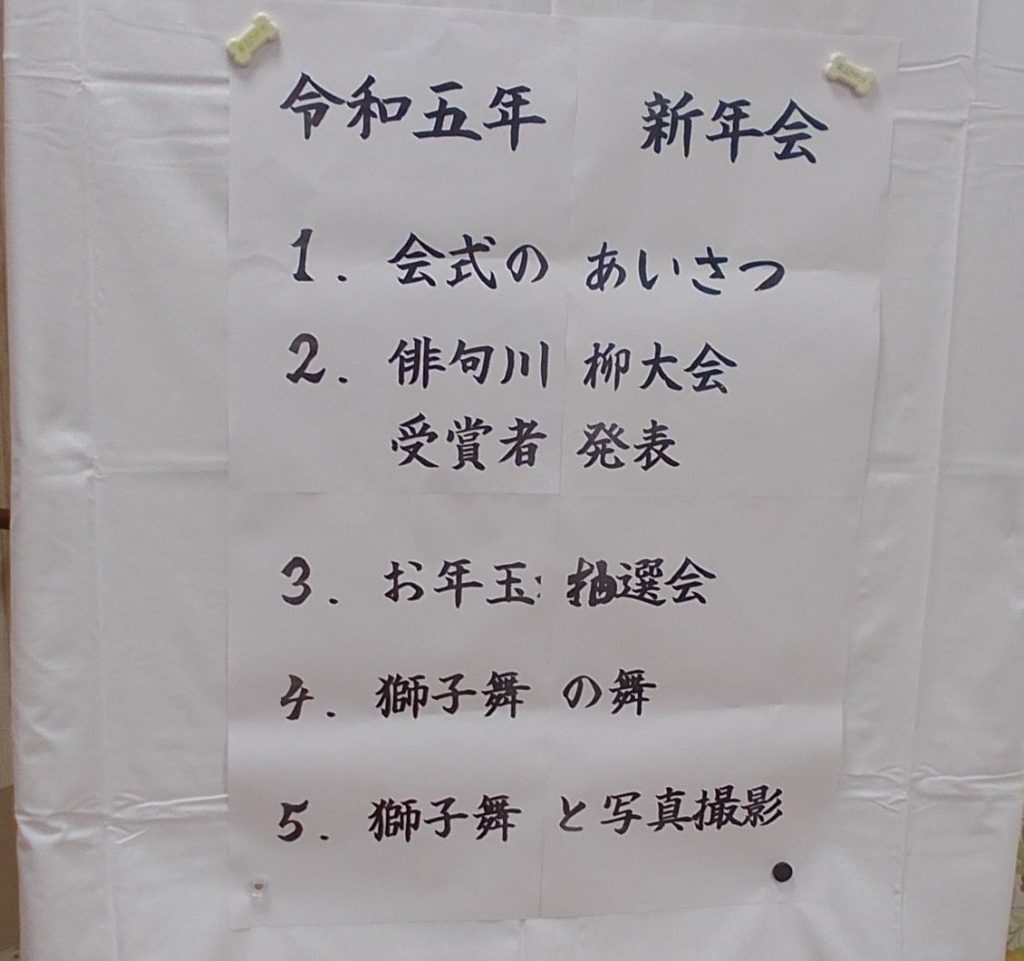 令和五年 新年会
1. 会式の あいさつ
2. 俳句川柳大会
受賞者発表
3. お年玉 抽選会
4. 獅子舞の舞
5. 獅子舞と写真撮影